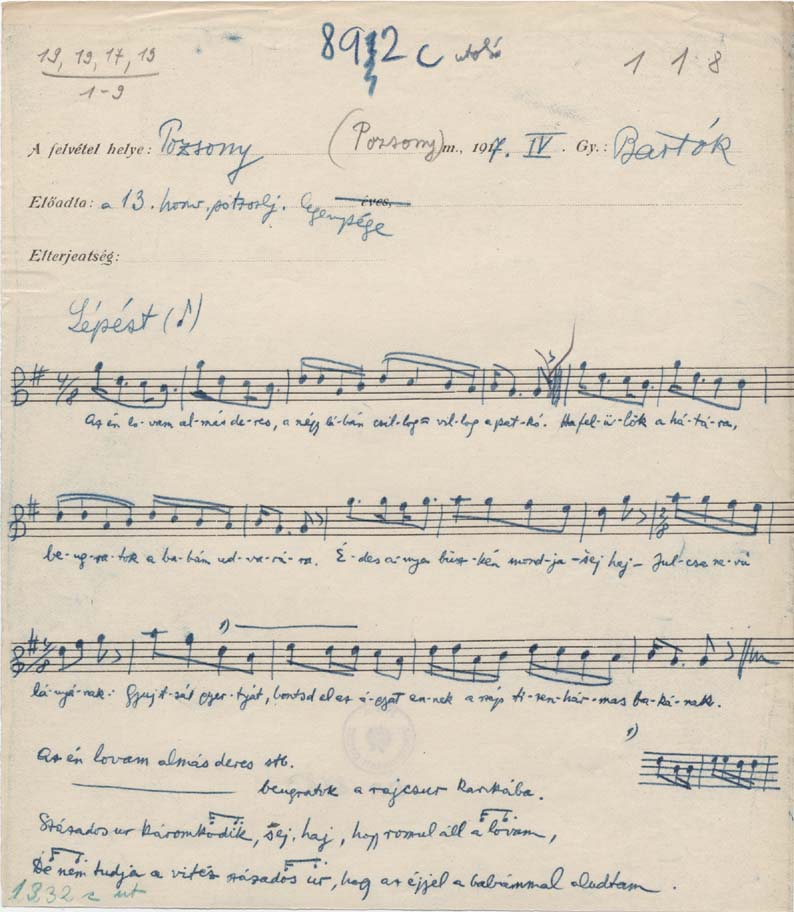 19, 19, 17, 19
1-9
8912 c utolsó
1 1 8
A felvétel helye: Pozsony (Pozsony) m., 1917. IV. Gy.: Bartók
Előadta: a 13. honv. pótzolj. legénysége éves,
Elterjedtség:
Lépést (♪)
4/8 Az én lo-vam al-más de-res, a négy lá-bán csil-log- vil-log a pat-kó. Ha fel-ü-lök a há-tá-ra,
be-ug-ra-tok a ba-bám ud-va-rá-ra. É-des a-nya büsz-kén mond-ja - sej haj - Jul-csa ne-vű
lá-nyá-nak: Gyujt-sál gyer-tyát, bontsd el az á-gyat en-nek a ti-zen-hár-mas ba-ká-nak.
1)
1)
Az én lovam almás deres stb.
beugratok a rajcsur karikába.
Százados ur káromkodik, sej, haj, hogy romul áll a lovam,
De nem tudja a vitéz százados úr, hogy az éjjel a babámmal aludtam.
1332 c ut